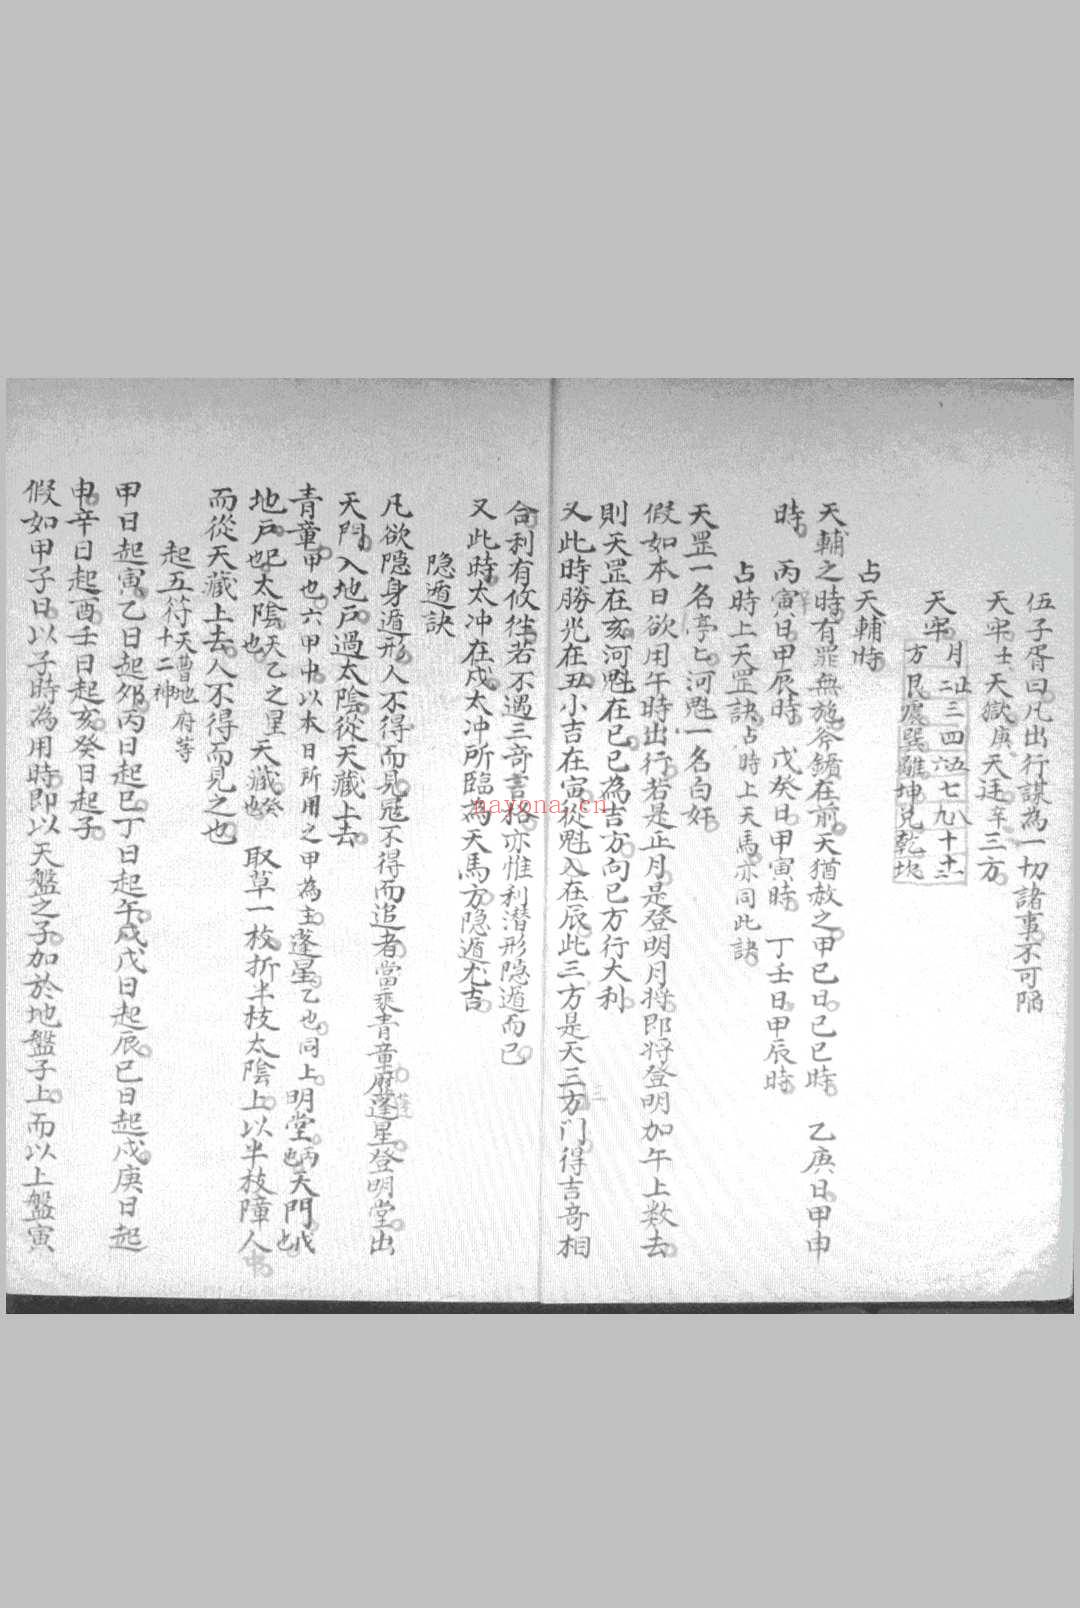 伍子胥曰凡出行謀為一切諸事不可陷
天牢壬天獄庚天迋辛三方
天牢 月 正二三四五六七八九十十一十二
方 艮震巽離坤兌乾坎
占天輔時
天輔之時有罪無施斧鑕在前天猶赦之甲己日己巳時 乙庚日甲申
時 丙寅日甲辰時 戊癸日甲寅時 丁壬日甲辰時
占時上天罡訣占時上天馬亦同此訣
天罡一名亭亭河魁一名白奸
假如本日欲用午時出行若是正月是登明月將即將登明加午上數去
則天罡在亥河魁在巳巳為吉方向巳方行大利
又此時勝光在丑小吉在寅從魁入在辰此三方是天三方门得吉奇相
合利有攸往若不遇三奇吉格亦惟利潛形隐遁而已
又此時太冲在戌太冲所臨為天馬方隐遁尤吉
隐遁訣
凡欲隐身遁形人不得而見冦不得而追者當乘青童歷蓬星登明堂出
天門入地户過太陰從天藏上去
青童甲也六甲中以本日所用之甲為主蓬星乙也同上明堂丙也天門戊也
地户己也太陰天乙之星也 天藏癸也 取草一枝折半枝太陰上以半枝障人中
而從天藏上去人不得而見之也
起五符天曹地府等十二神
甲日起寅乙日起夘丙日起巳丁日起午戊戊日起辰巳日起戌庚日起
申辛日起酉壬日起亥癸日起子
假如甲子日以子時為用時即以天盤之子加於地盤子上而以上盤寅
nayona.cn